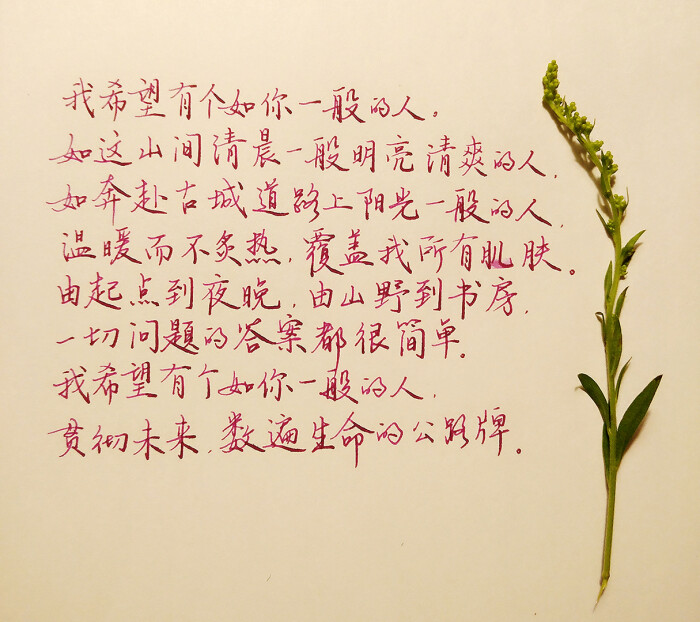 我希望有个如你一般的人。
如这山间清晨一般明亮清爽的人,
如奔赴古城道路上阳光一般的人,
温暖而不炙热,覆盖我所有肌肤。
由起点到夜晚,由山野到书房,
一切问题的答案都很简单。
我希望有个如你一般的人,
贯彻未来,数遍生命的公路牌。